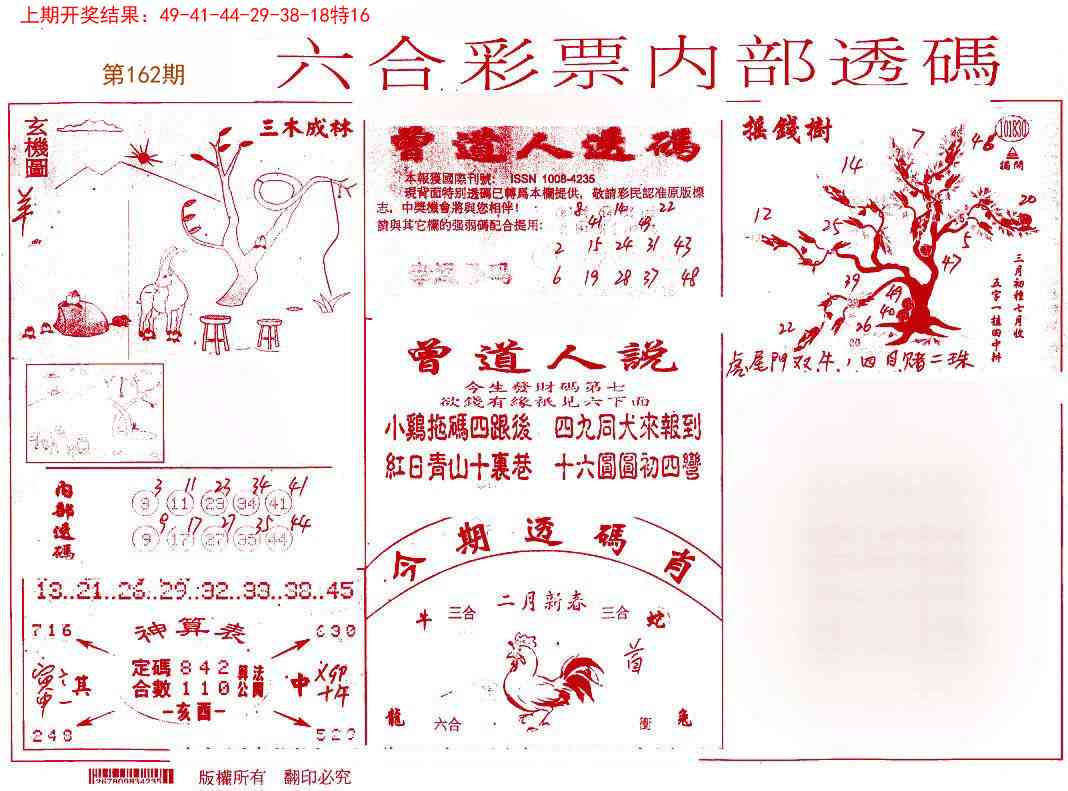 上期开奖结果：49-41-44-29-38-18特16
第162期
六合彩票内部透碼
玄機圖
羊
三木成林
曾道人透碼
本報獲國際刊號： ISSN 1008-4235
現背面特别透碼已轉爲本欄提供，敬請彩民認准原版標
志，中獎機會將與您相伴！
請與其它欄的强弱碼配合提用：
8 14 22
41 49
2 15 24 31 43
6 19 28 37 48
搖錢樹
101830
7
46
14
20
12
25
5
47
39
49
40
22
26
三月初種七月收
五字一植田中卅
曾道人説
今生發財碼第七
欲錢有緣祇見六下面
小鷄拖碼四跟後 四九同犬來報到
紅日青山十裏巷 十六圓圓初四彎
内部透碼
3 11 23 34 41
3 11 23 34 41
9 17 27 35 44
9 17 27 35 44
13..21..26..29..32..33..38..45
神算表
716
630
定碼 842
合數 110
-亥酉-
其
中
248
529
今期透碼肖
二月新春
牛 三合
三合 蛇
龍 六合
衝 兔
版權所有 翻印必究